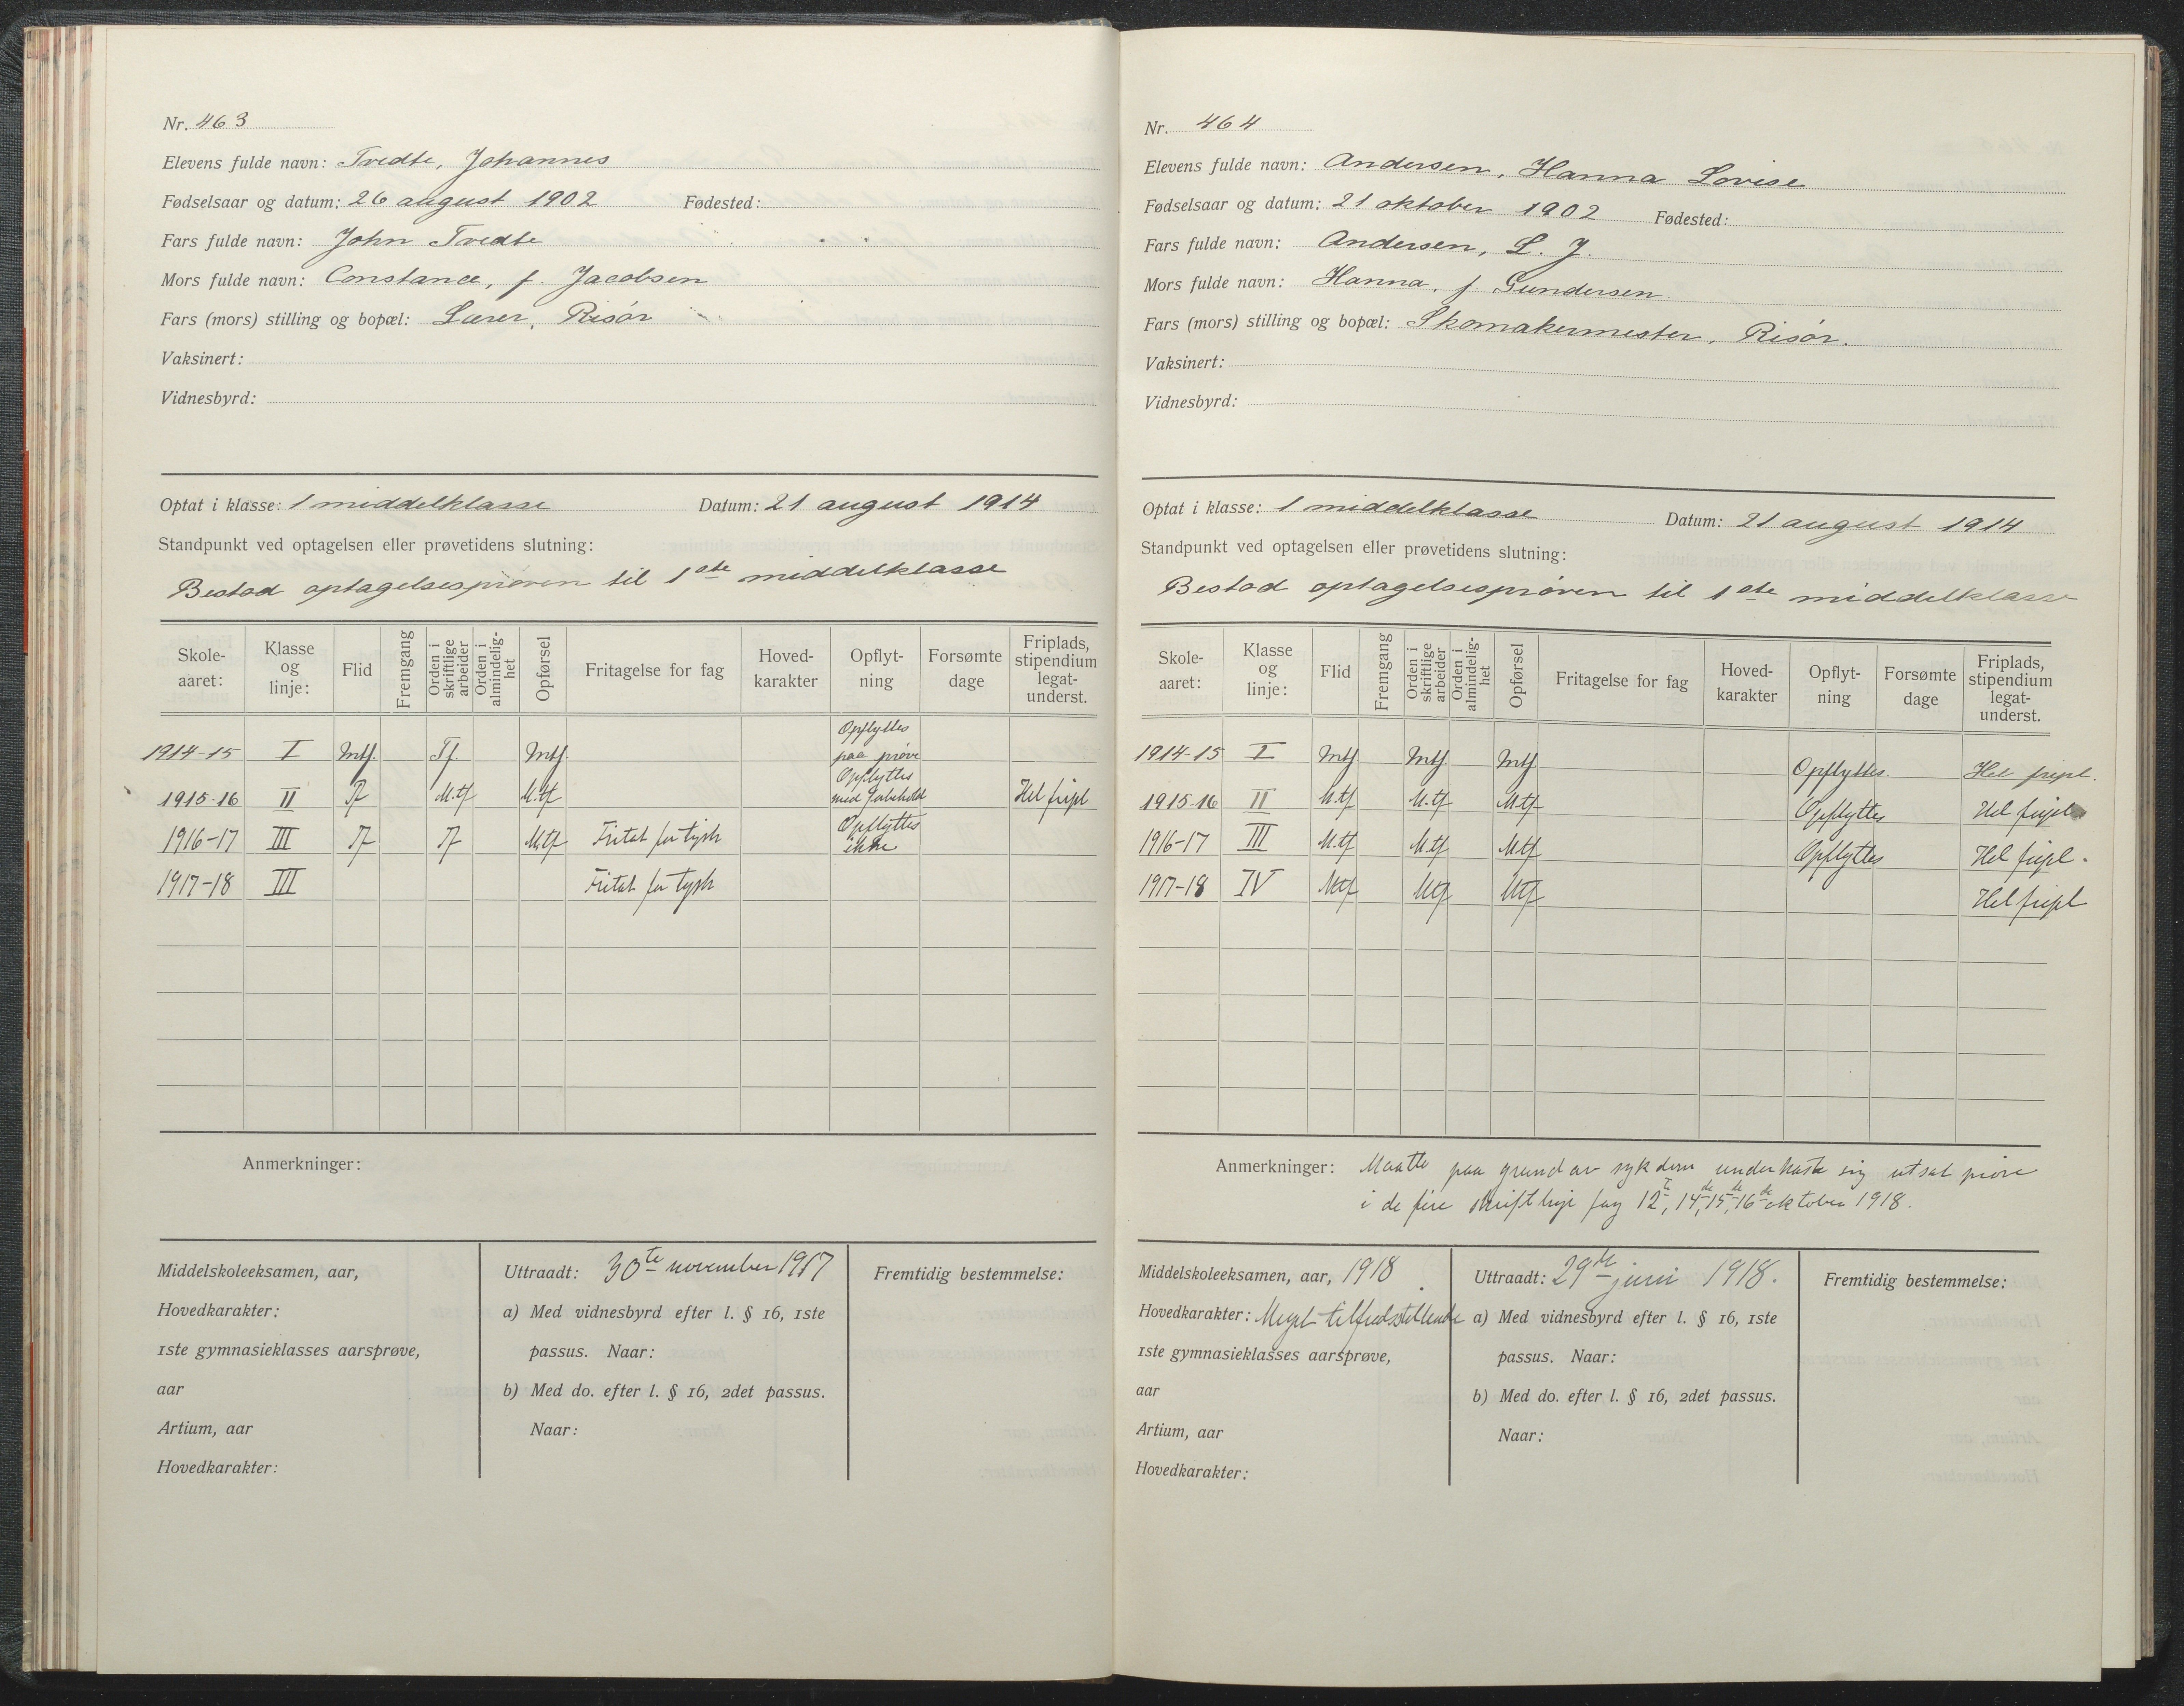 Nr. 463
Elevens fulde navn: Tvedte, Johannes
Fødselsaar og datum: 26 august 1902 Fødested:
Fars fulde navn: John Tvedte
Mors fulde navn: Constance, f. Jacobsen
Fars (mors) stilling og bopæl: Lærer, Risør
Vaksinert:
Vidnesbyrd:
Optat i klasse: 1 middelklasse Datum: 21 august 1914
Standpunkt ved optagelsen eller prøvetidens slutning:
Bestod optagelsesprøven til 1ste middelklasse
Skole-aaret: Klasse og linje: Flid Fremgang Orden i skriftlige arbeider Orden i almindelig-het Opførsel Fritagelse for fag Hoved-karakter Opflyt-ning Forsømte dage Friplads, stipendium legat-underst.
1914-15 I Mtf. Tf. Mtf. Opflyttes paa prøve
1915-16 II Tf M.tf M.tf Opflyttes med forbehold Hel fripl
1916-17 III Tf Tf M.tf Fritat for tysk Opflyttes ikke
1917-18 III Fritat for tysk
Anmerkninger:
Middelskoleeksamen, aar,
Hovedkarakter:
1ste gymnasieklasses aarsprøve,
aar
Artium, aar
Hovedkarakter:
Uttraadt: 30te november 1917
a) Med vidnesbyrd efter l. § 16, 1ste
passus. Naar:
b) Med do. efter l. § 16, 2det passus.
Naar:
Fremtidig bestemmelse:
Nr. 464
Elevens fulde navn: Andersen, Hanna Lovise
Fødselsaar og datum: 21 oktober 1902 Fødested:
Fars fulde navn: Andersen, L. J.
Mors fulde navn: Hanna, f. Gundersen.
Fars (mors) stilling og bopæl: Skomakermester, Risør.
Vaksinert:
Vidnesbyrd:
Optat i klasse: 1 middelklasse Datum: 21 august 1914
Standpunkt ved optagelsen eller prøvetidens slutning:
Bestod optagelsesprøven til 1ste middelklasse
Skole-aaret: Klasse og linje: Flid Fremgang Orden i skriftlige arbeider Orden i almindelig-het Opførsel Fritagelse for fag Hoved-karakter Opflyt-ning Forsømte dage Friplads, stipendium legat-underst.
1914-15 I Mtf Mtf Mtf Opflyttes. Hel fripl.
1915-16 II M.tf M.tf M.tf Opflyttes Hel fripl
1916-17 III M.tf M.tf M.tf Opflyttes Hel fripl.
1917-18 IV Mtf Mtf Mtf Hel fripl
Anmerkninger: Maatte paa grund av sykdom underkaste sig utsat prøve
i de fire skriftlige fag 12te, 14de, 15de, 16de oktober 1918.
Middelskoleeksamen, aar, 1918
Hovedkarakter: Meget tilfredsstillende
1ste gymnasieklasses aarsprøve,
aar
Artium, aar
Hovedkarakter:
Uttraadt: 29de juni 1918.
a) Med vidnesbyrd efter l. § 16, 1ste
passus. Naar:
b) Med do. efter l. § 16, 2det passus.
Naar:
Fremtidig bestemmelse: